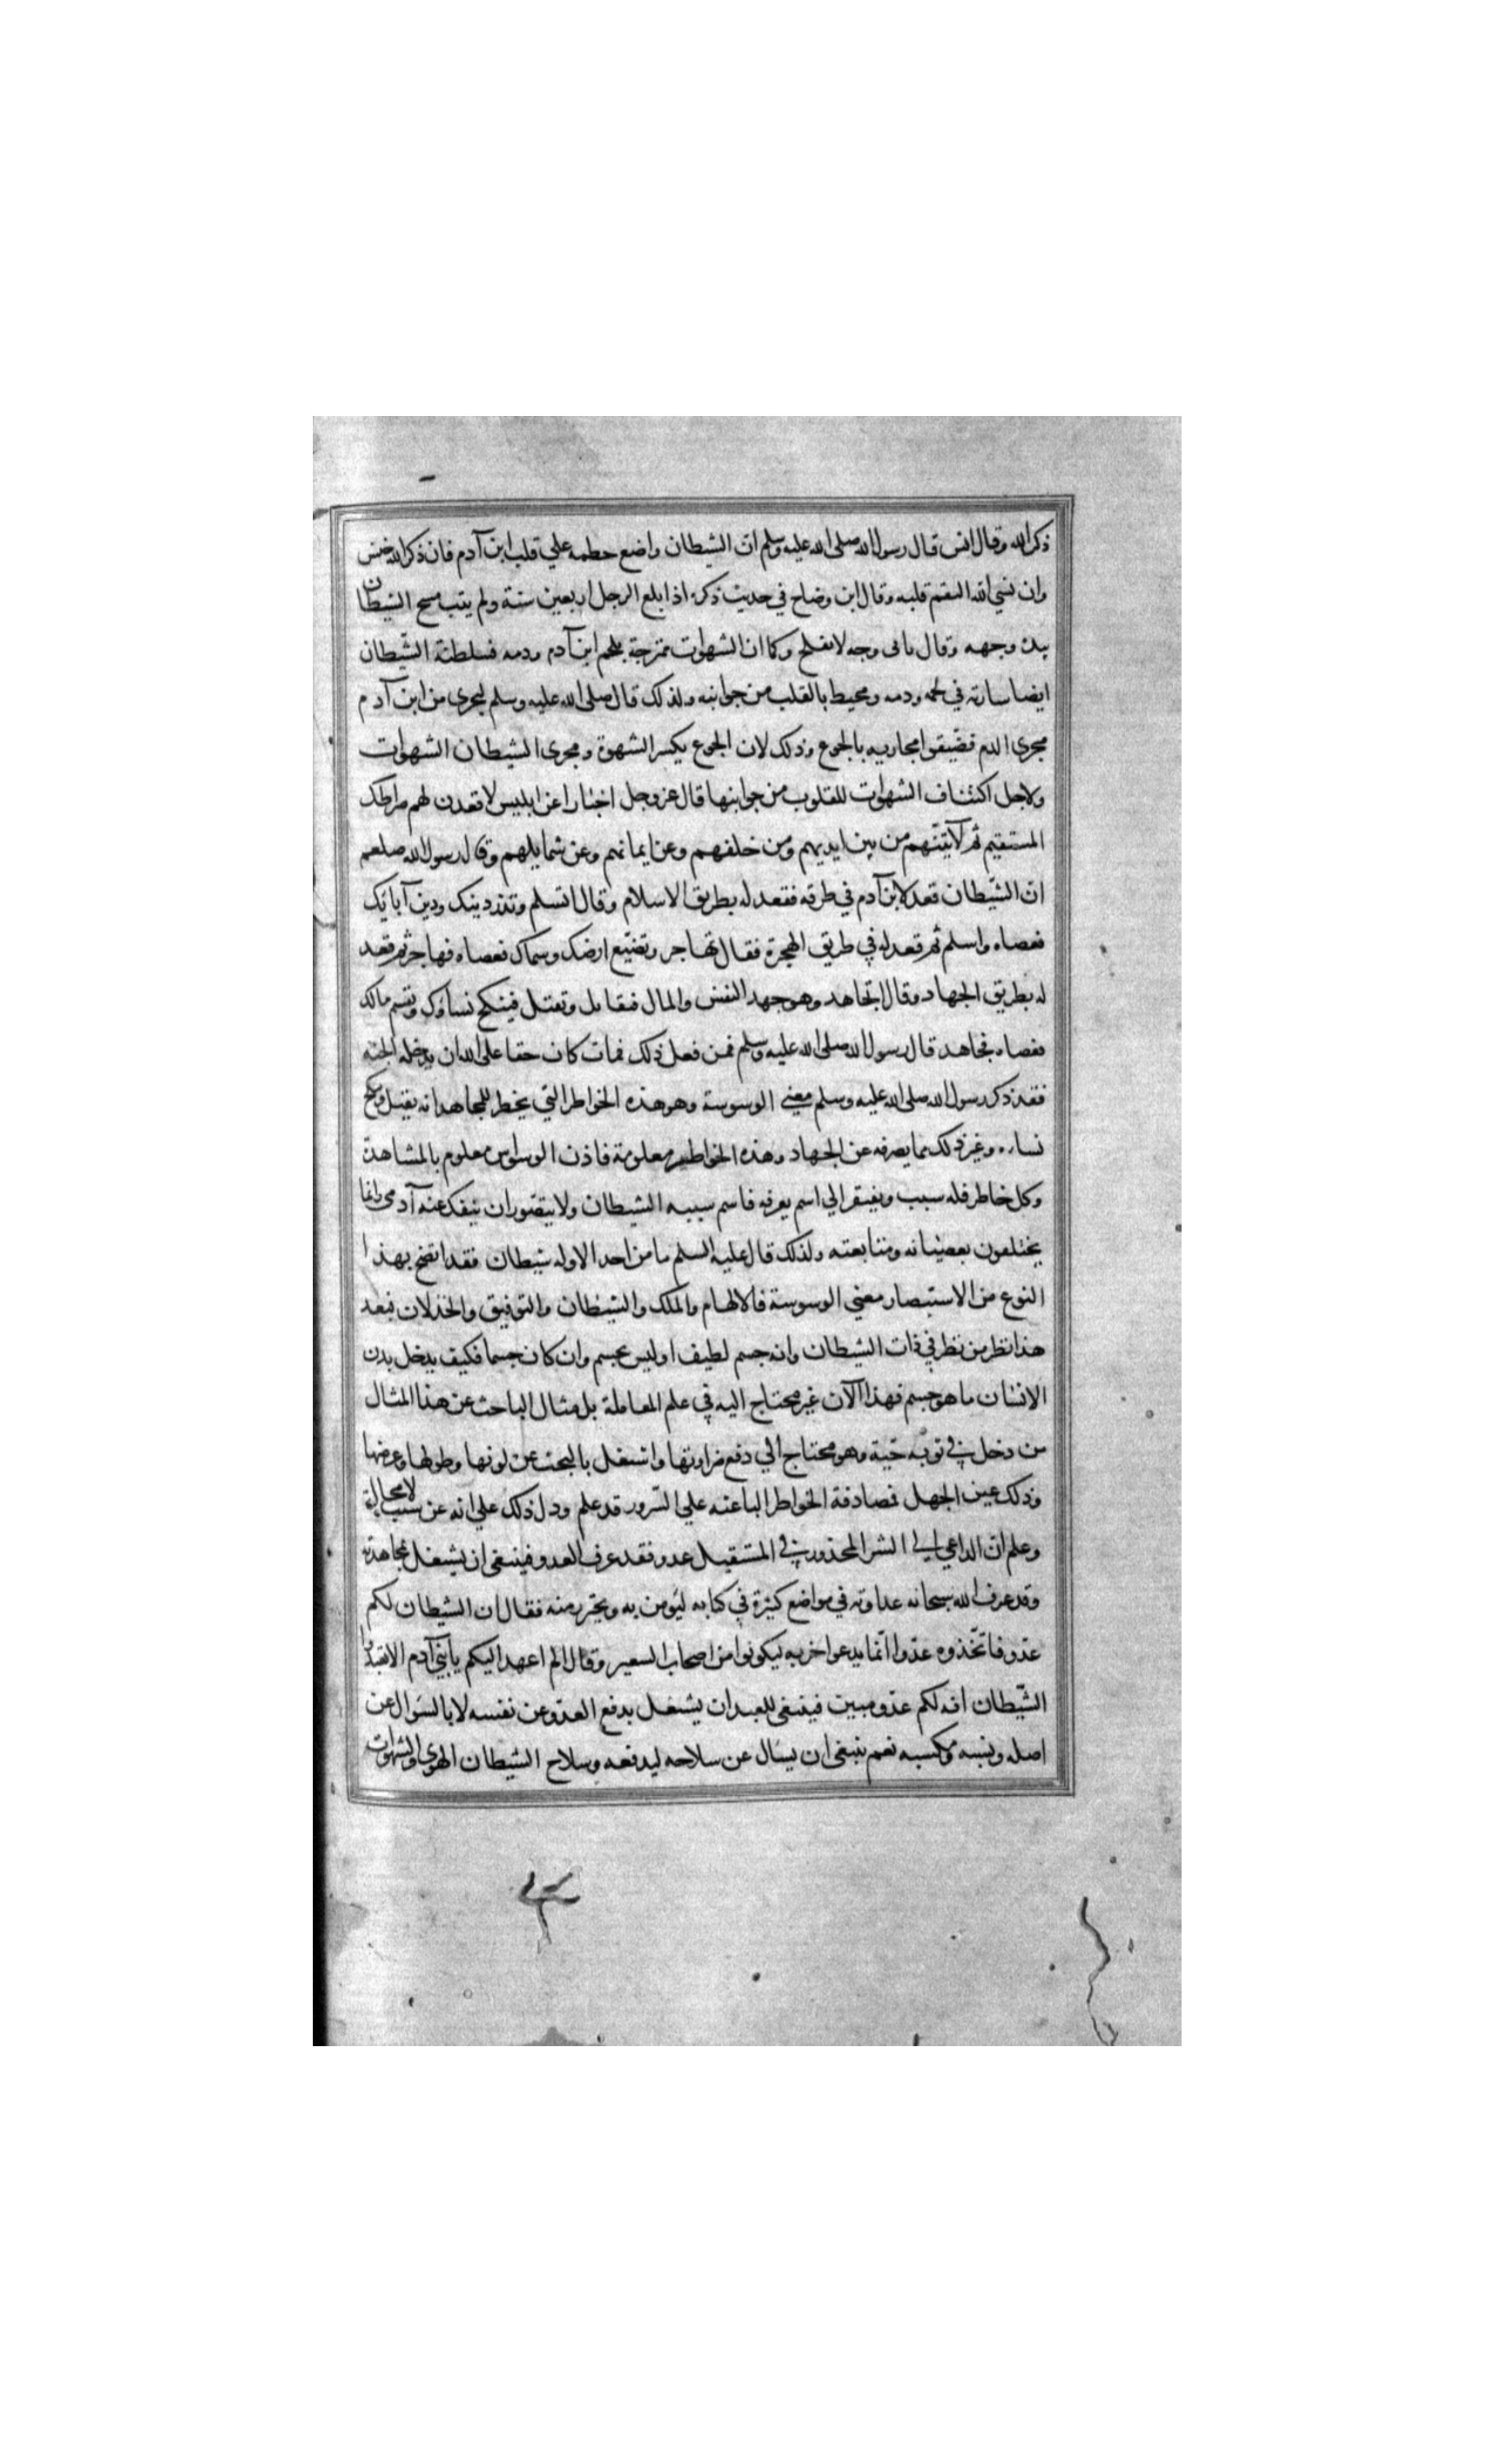 ذكر الله وقال انس قال رسول الله صلى الله عليه وسلم ان الشيطان واضع خطمه علي قلب ابن آدم فان ذكر الله خنس
وان نسي الله التقم قلبه وقال ابن وضاح في حديث ذكره اذا بلغ الرجل اربعين سنة ولم يتب مسح الشيطان
بيده وجهه وقال بابي وجه لا يفلح وكما ان الشهوات ممتزجة بلحم ابن آدم ودمه فسلطنة الشّيطان
ايضا سارية في لحمه ودمه ومحيط بالقلب من جوانبه ولذلك قال صلى الله عليه وسلم ليجرى من ابن آدم
مجرى الدم فضّيقوا مجاريه بالجوع وذلك لان الجوع يكسر الشهوة ومجرى الشيطان الشهوات
ولاجل اكتناف الشهوات للقلوب من جوانبها قال عز وجل اخبارا عن ابليس لاقعدن لهم صراطك
المستقيم ثم لآتيّنهم من بين ايديهم ومن خلفهم وعن ايمانهم وعن شمايلهم وقال رسول الله صلعم
انّ الشّيطان قعد لابن آدم في طرقه فقعد له بطريق الاسلام وقال اتسلم وتذر دينك ودين آبائك
فعصاه واسلم ثم قعد له في طريق الهجرة فقال تهاجر وتضيّع ارضك وسماك فعصاه فهاجر ثم قعد
له بطريق الجهاد وقال اتجاهد وهو جهد النفس والمال فتقاتل وتقتل فينكح نساؤك ويقسم مالك
فعصاه فجاهد قال رسول الله صلى الله عليه وسلم فمن فعل ذلك فمات كان حقا على الله ان يدخله الجنة
فقد ذكر رسول الله صلى الله عليه وسلم معنى الوسوسة وهو هذه الخواطر التي يخطر للمجاهد انه يقتل وينكح
نساؤه وغير ذلك مما يصرفه عن الجهاد وهذه الخواطر معلومة فاذن الوسواس معلوم بالمشاهدة
وكل خاطر فله سبب ويفتقر الي اسم يعرفه فاسم سببه الشيطان ولا يتصور ان ينفك عنه آدمي وانما
يختلفون بعصيانه ومتابعته ولذلك قال عليه السلم ما من احد الا وله شيطان فقد اتضح بهذا
النوع من الاستبصار معني الوسوسة فالالهام والملك والشيطان والتوفيق والخذلان فبعد
هذا نظر من نظر في ذات الشيطان وانه جسم لطيف او ليس بجسم وان كان جسما فكيف يدخل بدن
الانسان ما هو جسم فهذا الآن غير محتاج اليه في علم المعاملة بل مثال الباحث عن هذا المثال
من دخل في ثوبه حّية وهو محتاج الي دفع ضراوتها واشتغل بالبحث عن لونها وطولها وعرضها
وذلك عين الجهل فصادفة الخواطر الباعثه علي الشرور قد علم ودل ذلك علي انه عن سبب لا محالة
وعلم انّ الداعي الي الشر المحذور في المستقبل عدو فقد عرف العدو فينبغى ان يشتغل بمجاهدته
وقد عرف الله سبحانه عداوته في مواضع كثيرة في كتابه ليؤمن به ويحترز منه فقال ان الشيطان لكم
عدّو فاتّخذوه عدّوا انّما يدعوا حزبه ليكونوا من اصحاب السعير وقال الم اعهد اليكم يا بني آدم الا تعبدوا
الشّيطان انه لكم عدّو مبين فينبغى للعبد ان يشتغل بدفع العدو عن نفسه لا بالسؤال عن
اصله ونسبه ومكسبه نعم ينبغى ان يسال عن سلاحه ليدفعه وسلاح الشيطان الهوي والشهوات